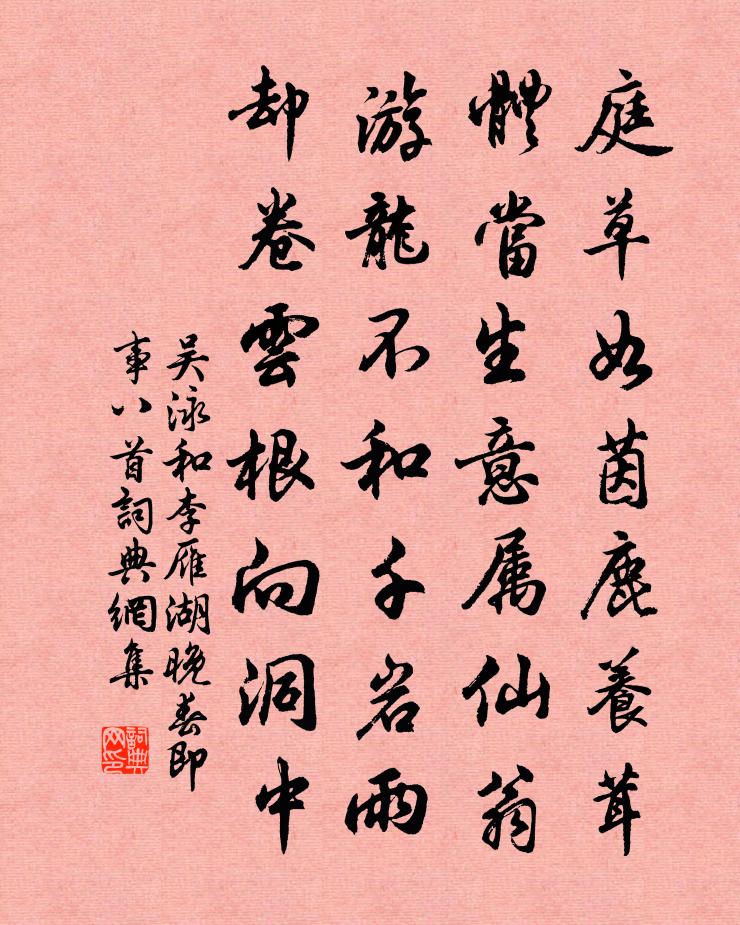 庭草如茵鹿養茸
體當生意属仙翁
游龍不和千岩雨
却卷雲根向洞中
吴泳和李雁湖晚春即
事八首詞典網集
詞典网印